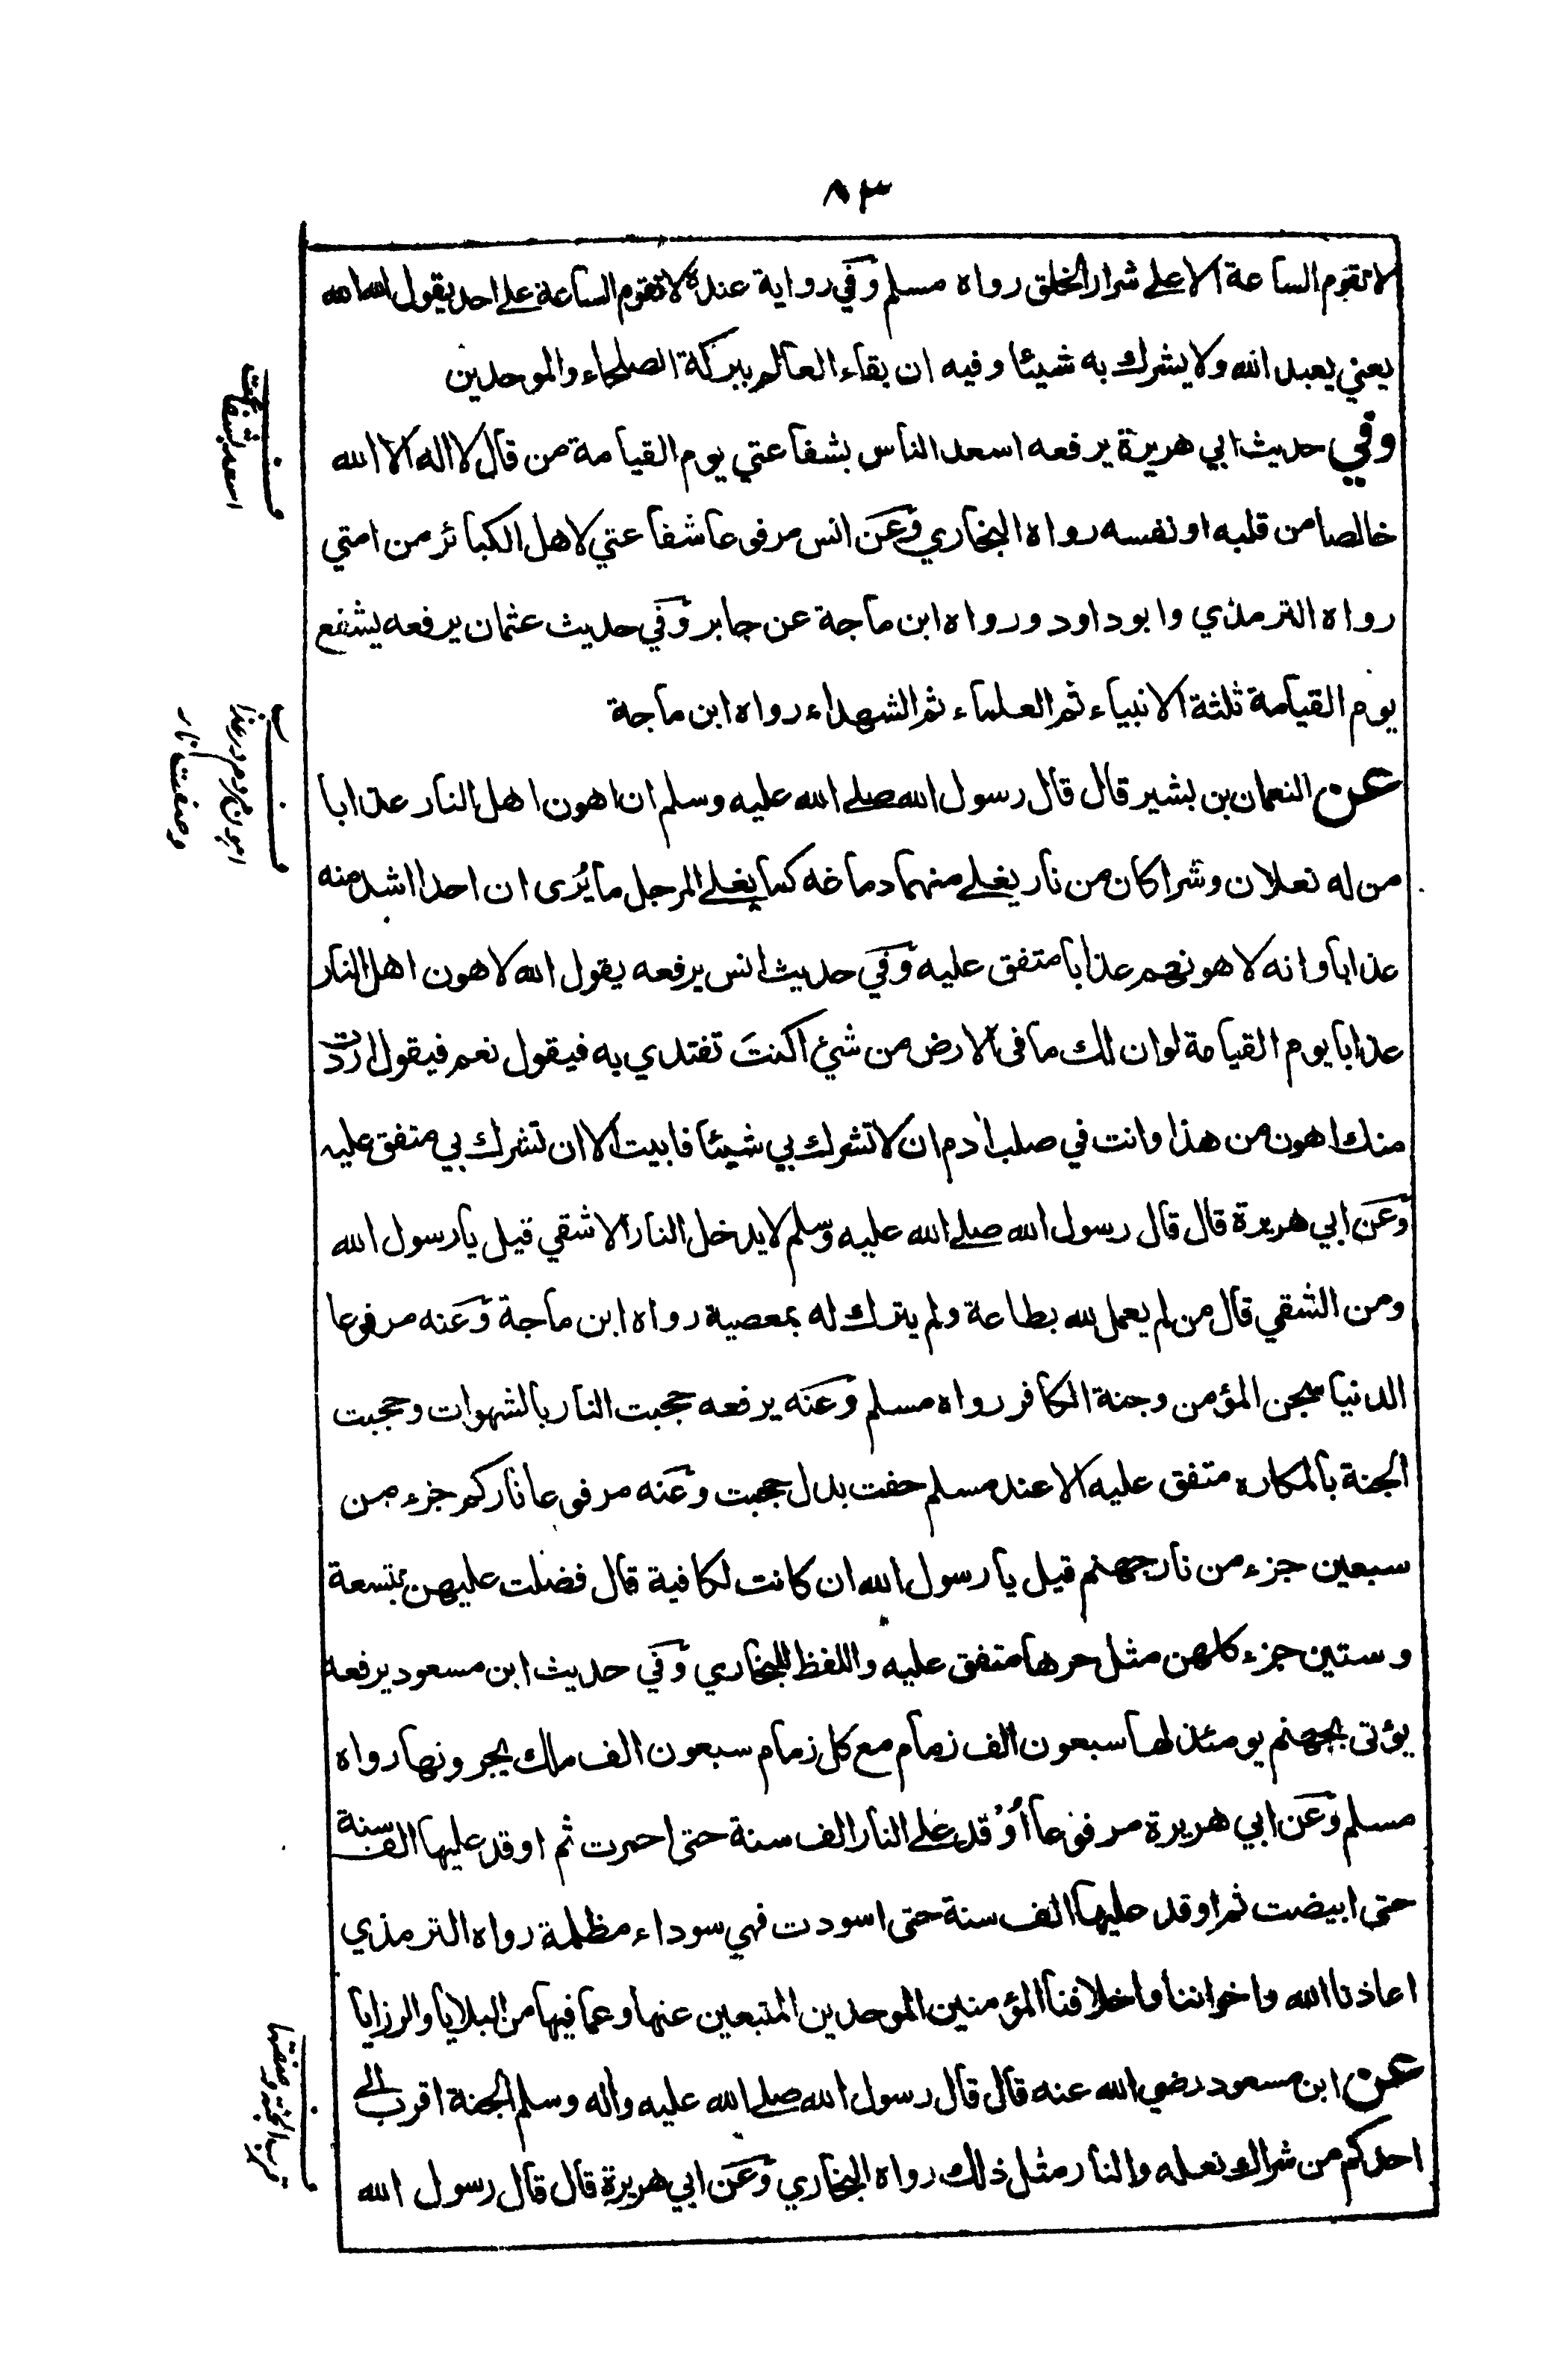 ٨٣
لا تقوم الساعة الا علے شرار الخلق رواه مسلم وفي رواية عنده لا تقوم الساعة علے احد يقول الله الله
يعني يعبد الله ولا يشرك به شيئا وفيه ان بقاء العالم ببركة الصلحاء والموحدين
وفي حديث ابي هريرة يرفعه اسعد الناس بشفاعتي يوم القيامة من قال لا اله الا الله
خالصا من قلبه او نفسه رواه البخاري وعن انس مرفوعا شفاعتي لاهل الكبائر من امتي
رواه الترمذي وابو داود ورواه ابن ماجة عن جابر وفي حديث عثمان يرفعه يشفع
يوم القيامة ثلثة الانبياء ثم العلماء ثم الشهداء رواه ابن ماجة
عن النعمان بن بشير قال قال رسول الله صلے الله عليه وسلم ان اهون اهل النار عذابا
من له نعلان وشراكان من نار يغلے منهما دماغه كما يغلے المرجل ما يُرى ان احدا اشد منه
عذابا وانه لاهونهم عذابا متفق عليه وفي حديث انس يرفعه يقول الله لاهون اهل النار
عذابا يوم القيامة لو ان لك ما فى الارض من شئ اكنتَ تفتدي به فيقول نعم فيقول اردت
منك اهون من هذا وانت في صلب ادم ان لا تشرك بي شيئا فابيت الا ان تشرك بي متفق عليه
وعن ابي هريرة قال قال رسول الله صلے الله عليه وسلم لا يدخل النار الا شقي قيل يا رسول الله
ومن الشقي قال من لم يعمل لله بطاعة ولم يترك له بمعصية رواه ابن ماجة وعنه مرفوعا
الدنيا سجن المؤمن وجنة الكافر رواه مسلم وعنه يرفعه حجبت النار بالشهوات وحجبت
الجنة بالمكاره متفق عليه الا عند مسلم حفت بدل حجبت وعنه مرفوعا ناركم جزء من
سبعين جزء من نار جهنم قيل يا رسول الله ان كانت لكافية قال فضلت عليهن بتسعة
وستين جزء كلهن مثل حرها متفق عليه واللفظ للبخاري وفي حديث ابن مسعود يرفعه
يؤتى بجهنم يومئذ لها سبعون الف زمام مع كل زمام سبعون الف ملك يجرونها رواه
مسلم وعن ابي هريرة مرفوعا أُوْقد علے النار الف سنة حتى احمرت ثم اوقد عليها الف سنة
حتى ابيضت ثم اوقد عليها الف سنة حتى اسودت فهي سوداء مظلمة رواه الترمذي
اعاذنا الله واخواننا واخلافنا المؤمنين الموحدين المتبعين عنها وعما فيها من البلايا والرزايا
عن ابن مسعود رضي الله عنه قال قال رسول الله صلے الله عليه واله وسلم الجنة اقرب الے
احدكم من شراك نعله والنار مثل ذلك رواه البخاري وعن ابي هريرة قال قال رسول الله
ف
اسعد بشفاعت
ف
وصفت نار
ف
قرب الجنة وصفتها